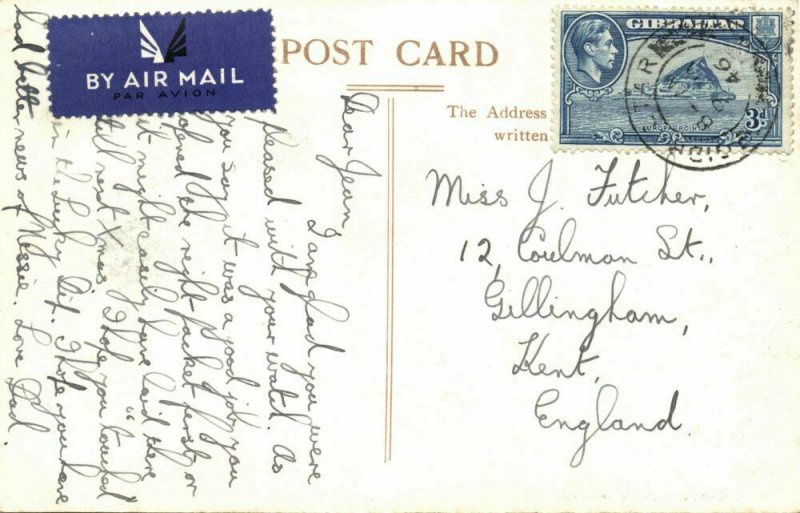 BY AIR MAIL
PAR AVION
POST CARD
The Address
written
GIBRALTAR
EUROPA POINT
3d
Miss J. Futcher,
12, Coulman St.,
Gillingham,
Kent,
England.
Dear Jean,
I am glad you were
pleased with your watch. As
you say it was a good job you
opened the right packet first or
it might easily have laid there
till next Xmas. I hope you "touched
in the Lucky Dip. I hope you have
had better news of Nessie. Love Dad.